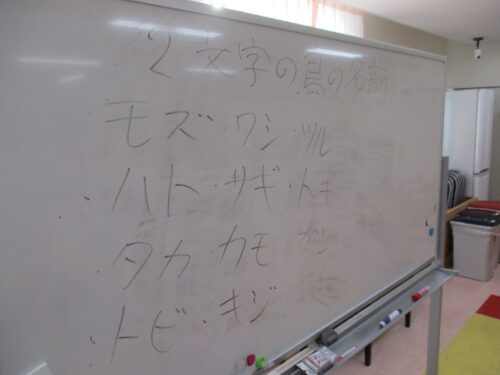 2文字の鳥の名前
・モズ・ワシ・ツル
・ハト・サギ・トキ
・タカ・カモ・ガン
・トビ・キジ